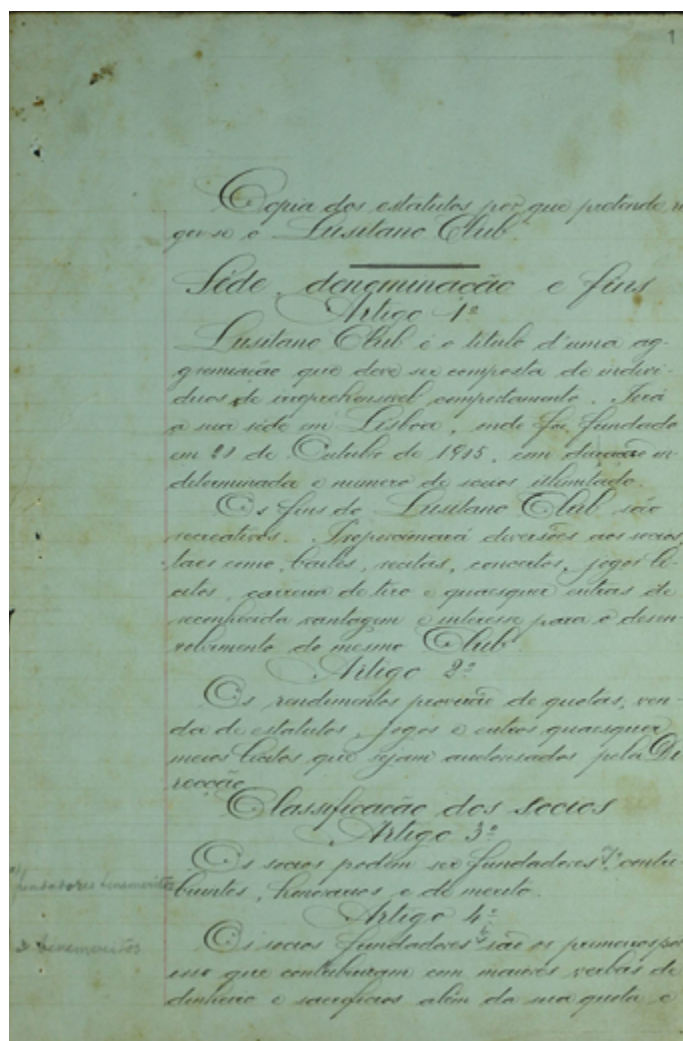 1
Copia dos estatutos por que pretende
ger-se o Lusitano Club
Séde, denominação e fins
Artigo 1º
Lusitano Club é o titulo d'uma ag-
gremiação que deve ser composta de indivi-
duos de irreprehensivel comportamento. Terá
a sua séde em Lisboa, onde foi fundado
em de Outubro de 1905, com duração in
determinada e numero de socios illimitado.
Os fins do Lusitano Club são
recreativos. Proporcionará diversões aos socios,
taes como bailes, recitas, concertos, jogos li-
citos, carreira de tiro e quaesquer outras de
reconhecida vantagem e interesse para o desen-
volvimento do mesmo Club
Artigo 2º
Os rendimentos provirão de quotas, ven-
da de estatutos, jogos e outros quaesquer
meios licitos que sejam auctorisados pela Di
recção
Classificação dos socios
Artigo 3º
Os socios podem ser fundadores, contri-
fundadores benemeritos
buintes, honorarios e de merito.
Artigo 4º
Os socios fundadores são os primeiros por
e benemeritos
isso que contribuiram com maiores verbas de
dinheiro e sacrificios além da sua quota e